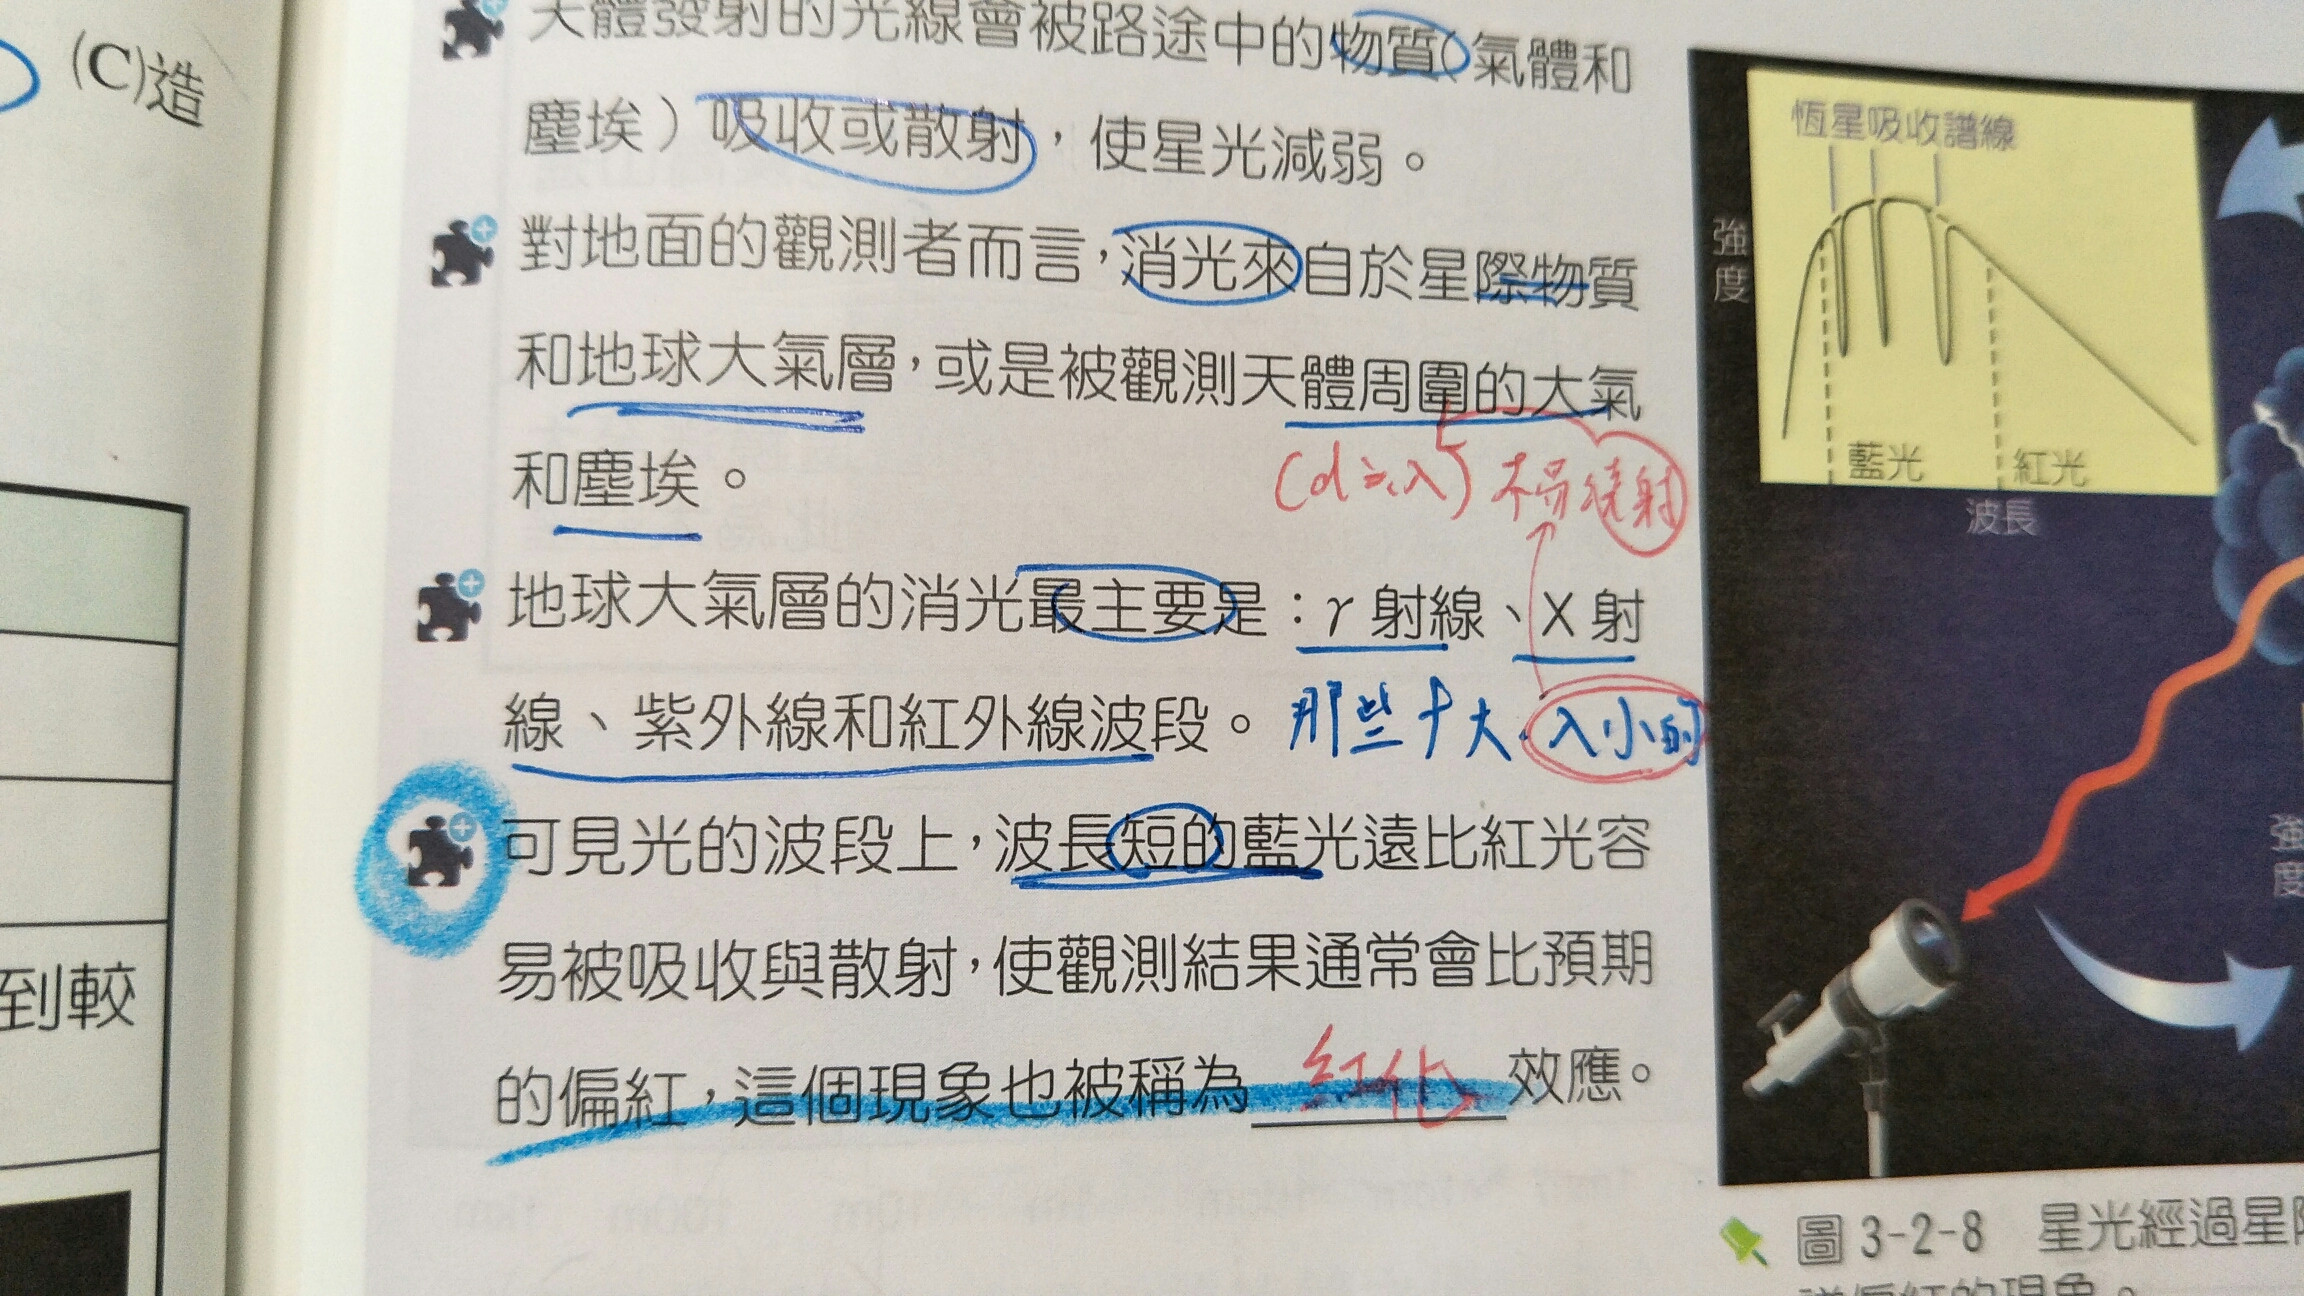 (C)造
到較
天體發射的光線會被路途中的物質（氣體和
塵埃）吸收或散射，使星光減弱。
對地面的觀測者而言，消光來自於星際物質
和地球大氣層，或是被觀測天體周圍的大氣
和塵埃。
不易繞射
地球大氣層的消光最主要是：γ射線、X射
線、紫外線和紅外線波段。
那些 大 λ小的
可見光的波段上，波長短的藍光遠比紅光容
易被吸收與散射，使觀測結果通常會比預期
的偏紅，這個現象也被稱為 紅化 效應。
恆星吸收譜線
強度
藍光
紅光
波長
強度
圖 3-2-8 星光經過星際
偏紅的現象。